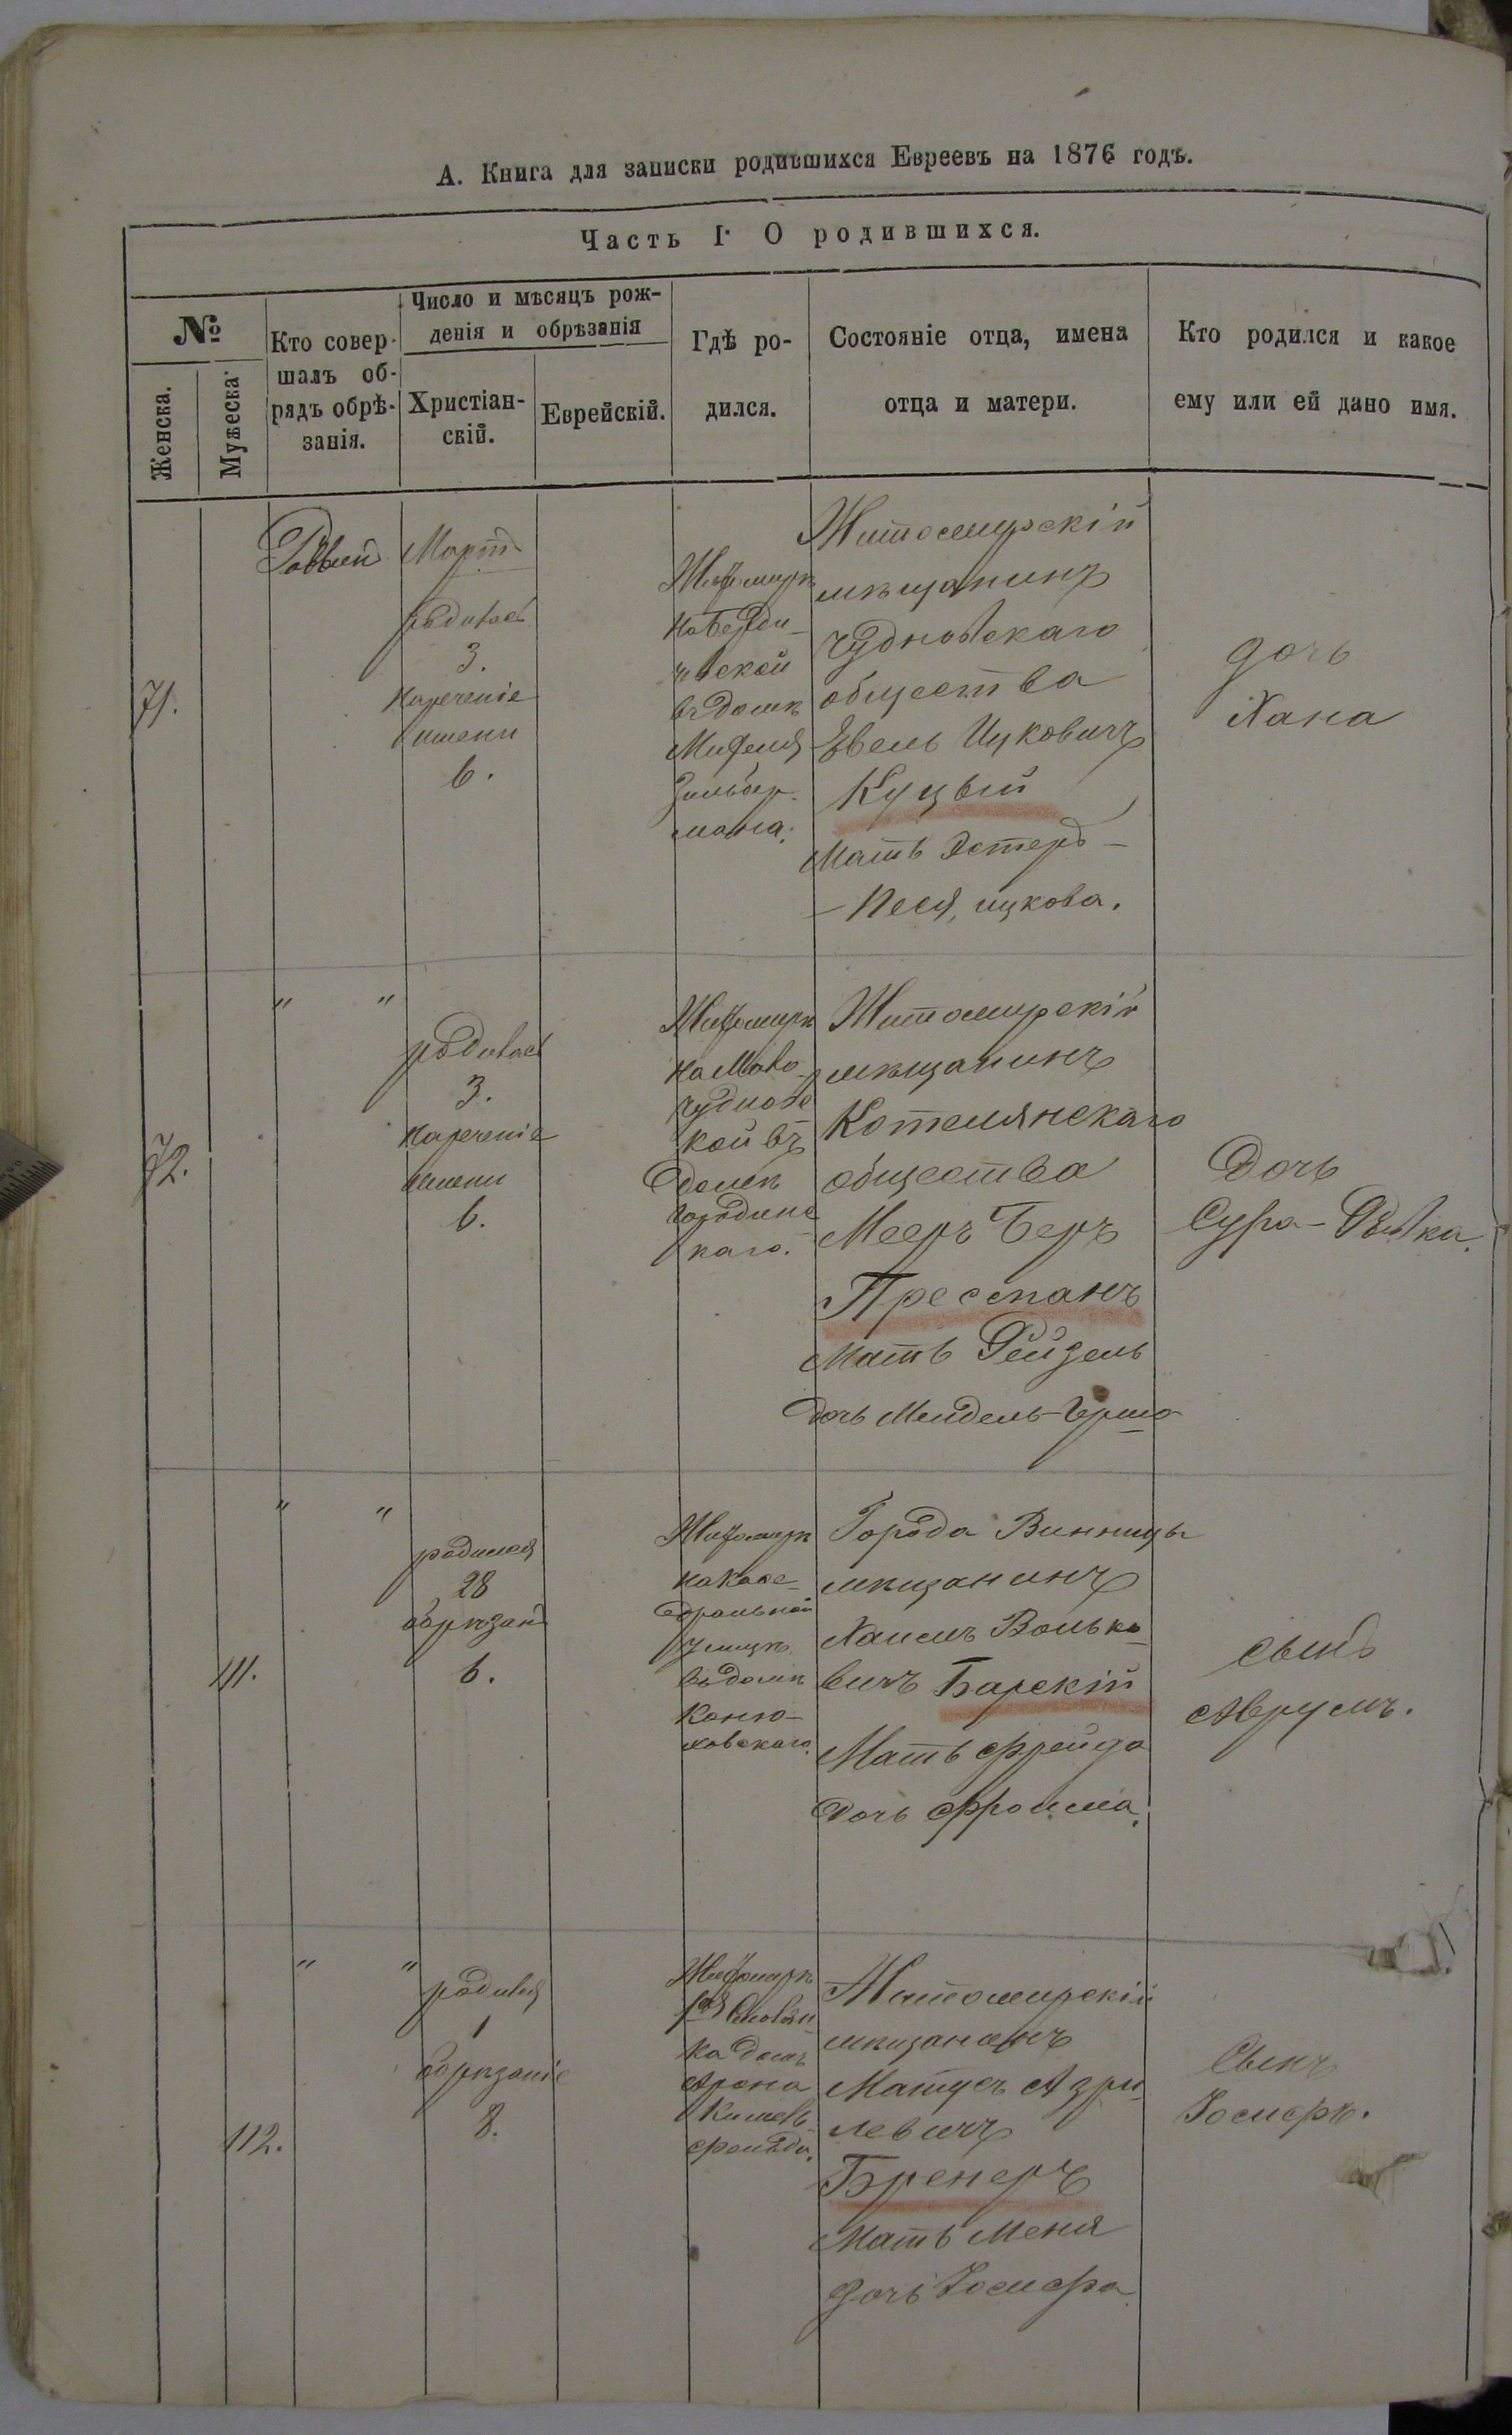 А. Книга для записки родившихся Евреевъ на 1876 годъ.
Часть I. О родившихся.
№
Женска.
Мужеска.
Кто совер-
шалъ об-
рядъ обрѣ-
занія.
Число и мѣсяцъ рож-
денія и обрѣзанія
Христіан-
скій.
Еврейскій.
Гдѣ ро-
дился.
Состояніе отца, имена
отца и матери.
Кто родился и какое
ему или ей дано имя.
71.
Раввин
Март
родилась
3.
наречение
имени
6.
Житомирѣ
на Берди-
чевской
въ домѣ
Зильбер-
мана.
Житомирскій
мѣщанинъ
Чудновскаго
общества
Ицковичъ
Куцый
Мать Эстеръ-
-Песя, ицкова.
дочь
Хана
72.
" "
родилась
3.
наречение
имени
6.
Житомирѣ
на Мало-
чуднов
кой въ
домѣ
каго.
Житомирскій
мѣщанинъ
Котелянскаго
общества
Мееръ Беръ
Пресманъ
Мать Рейзель
дочь Мендель-Герша
Дочь
Сура-Ривка.
111.
" "
родился
28
обрѣзан
6.
Житомирѣ
на Кафе-
дральной
улицѣ
въ домѣ
Коню-
ховскаго.
Города Винницы
мѣщанинъ
Хаимъ Волько-
вичъ Барскій
Мать Фрейда
дочь Фроима.
сынъ
Аврумъ.
112.
" "
родился
1
обрѣзаніе
8.
Житомирѣ
ка домъ
Арона
Житомирскій
мѣщанинъ
Матусъ Азри-
левичъ
Бренеръ
Мать Меня
дочь Иосифа
Сынъ
Иосифъ.